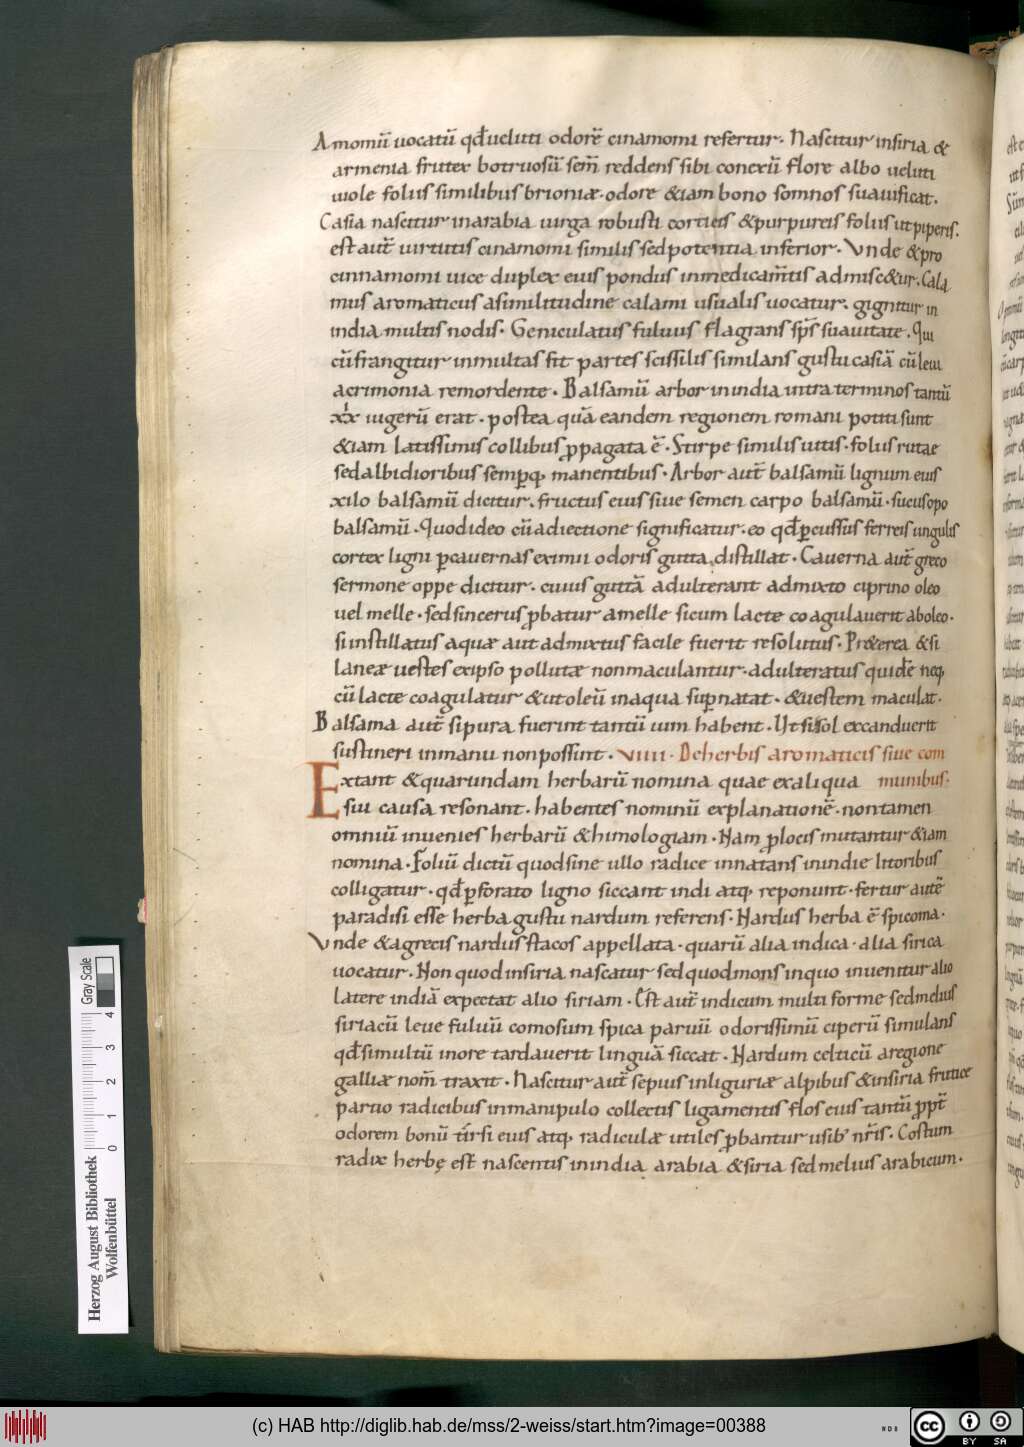 Amomū uocatū qđ ueluti odorē cinamomi refertur. Nascitur insiria &
armenia frutex botruosū sem̄ reddens sibi conexū flore albo ueluti
uiole foliis similibus brioniæ. odore &iam bono somnos suauificat.
Casia nascitur inarabia uirga robusti corticis & purpureis foliis ut piperis.
est aut̄ uirtutis cinamomi similis sed potentia inferior. Vnde & pro
cinnamomi uice duplex eius pondus inmedicam̄tis admisc&ur. Cala
mus aromaticus asimilitudine calami usualis uocatur. gignitur in
india multis nodis. Geniculatus fuluus flagrans sp̄s suauitate. Qui
cū frangitur inmultas fit partes scissilis similans gustu casiā cū leui
acrimonia remordente. Balsamū arbor inindia intra terminos tantū
xx iugerū erat. postea quā eandem regionem romani potiti sunt
&iam latissimis collibus ꝓpagata ē. Stirpe similis uitis. foliis rutae
sed albidioribus semꝑq; manentibus. Arbor aut̄ balsamū lignum eius
xilo balsamū dicitur. fructus eius siue semen carpo balsamū. sucus opo
balsamū. Quod ideo cū adiectione significatur. eo qđ ꝑcussus ferreis ungulis
cortex ligni ꝑ cauernas eximii odoris gutta distillat. Cauerna aut̄ greco
sermone oppe dicitur. cuius guttā adulterant admixto ciprino oleo
uel melle. sed sincerus ꝓbatur amelle sicum lacte coagulauerit aboleo.
si instillatus aquæ aut admixtus facile fuerit resolutus. Pr&erea & si
laneæ uestes exipso pollutæ non maculantur. adulteratus quidē neq;
cū lacte coagulatur & ut oleū inaqua suꝑnatat. & uestem maculat.
Balsama aut̄ si pura fuerint tantū uim habent. Ut si sol excanduerit
sustineri inmanu non possint. VIIII. De herbis aromaticis siue com
Extant & quarundam herbarū nomina quae exaliqua munibus.
sui causa resonant. habentes nominū explanationē. non tamen
omniū inuenies herbarū & himologiam. Nam ꝓ locis mutantur &iam
nomina. Foliū dictū quod sine ullo radice innatans inindie litoribus
colligatur. qđ ꝑforato ligno siccant indi atq; reponunt. fertur autē
paradisi esse herba gustu nardum referens. Nardus herba ē spicoma.
Vnde & agrecis nardus stacos appellata. quarū alia indica. alia sirica
uocatur. Non quod insiria nascatur sed quod mons inquo inuenitur alio
latere indiā expectat alio siriam. Est aut̄ indicum multi forme sed melius
siriacū leue fuluū comosum spica paruū odorissimū ciperū simulans
qđ si multū inore tardauerit linguā siccat. Nardum celticū aregione
galliæ nom̄ traxit. Nascitur aut̄ sepius inliguriæ alpibus & insiria frutice
paruo radicibus inmanipulo collectis ligamentis flos eius tantū ꝓpt̄
odorem bonū tirsi eius atq; radiculæ utiles ꝓbantur usib' nr̄is. Costum
radix herbę est nascentis inindia arabia & siria sed melius arabicum.
Herzog August Bibliothek
Wolfenbüttel
0 1 2 3 4
Gray Scale
(c) HAB http://diglib.hab.de/mss/2-weiss/start.htm?image=00388
WDB
cc BY SA